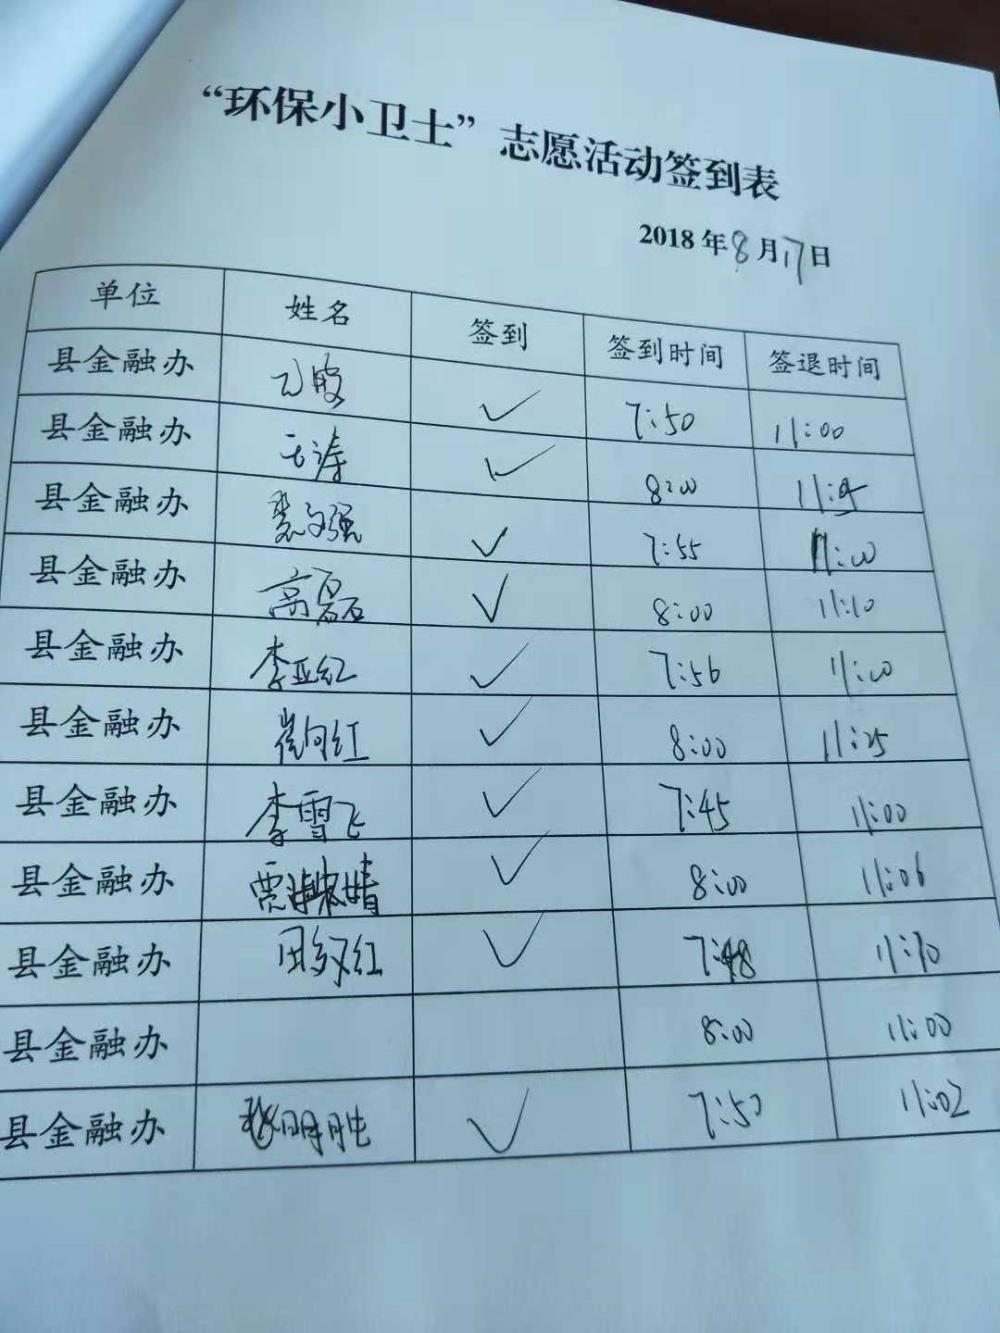 “环保小卫士”志愿活动签到表
2018年8月17日
单位 姓名 签到 签到时间 签退时间
县金融办 ✓ 7:50 11:00
县金融办 王涛 ✓ 8:00 11:05
县金融办 ✓ 7:55 11:00
县金融办 高磊 ✓ 8:00 11:10
县金融办 李亚红 ✓ 7:56 11:00
县金融办 崔向红 ✓ 8:00 11:25
县金融办 李雪飞 ✓ 7:45 11:00
县金融办 ✓ 8:00 11:06
县金融办 ✓ 7:48 11:10
县金融办 8:00 11:00
县金融办 ✓ 7:50 11:02